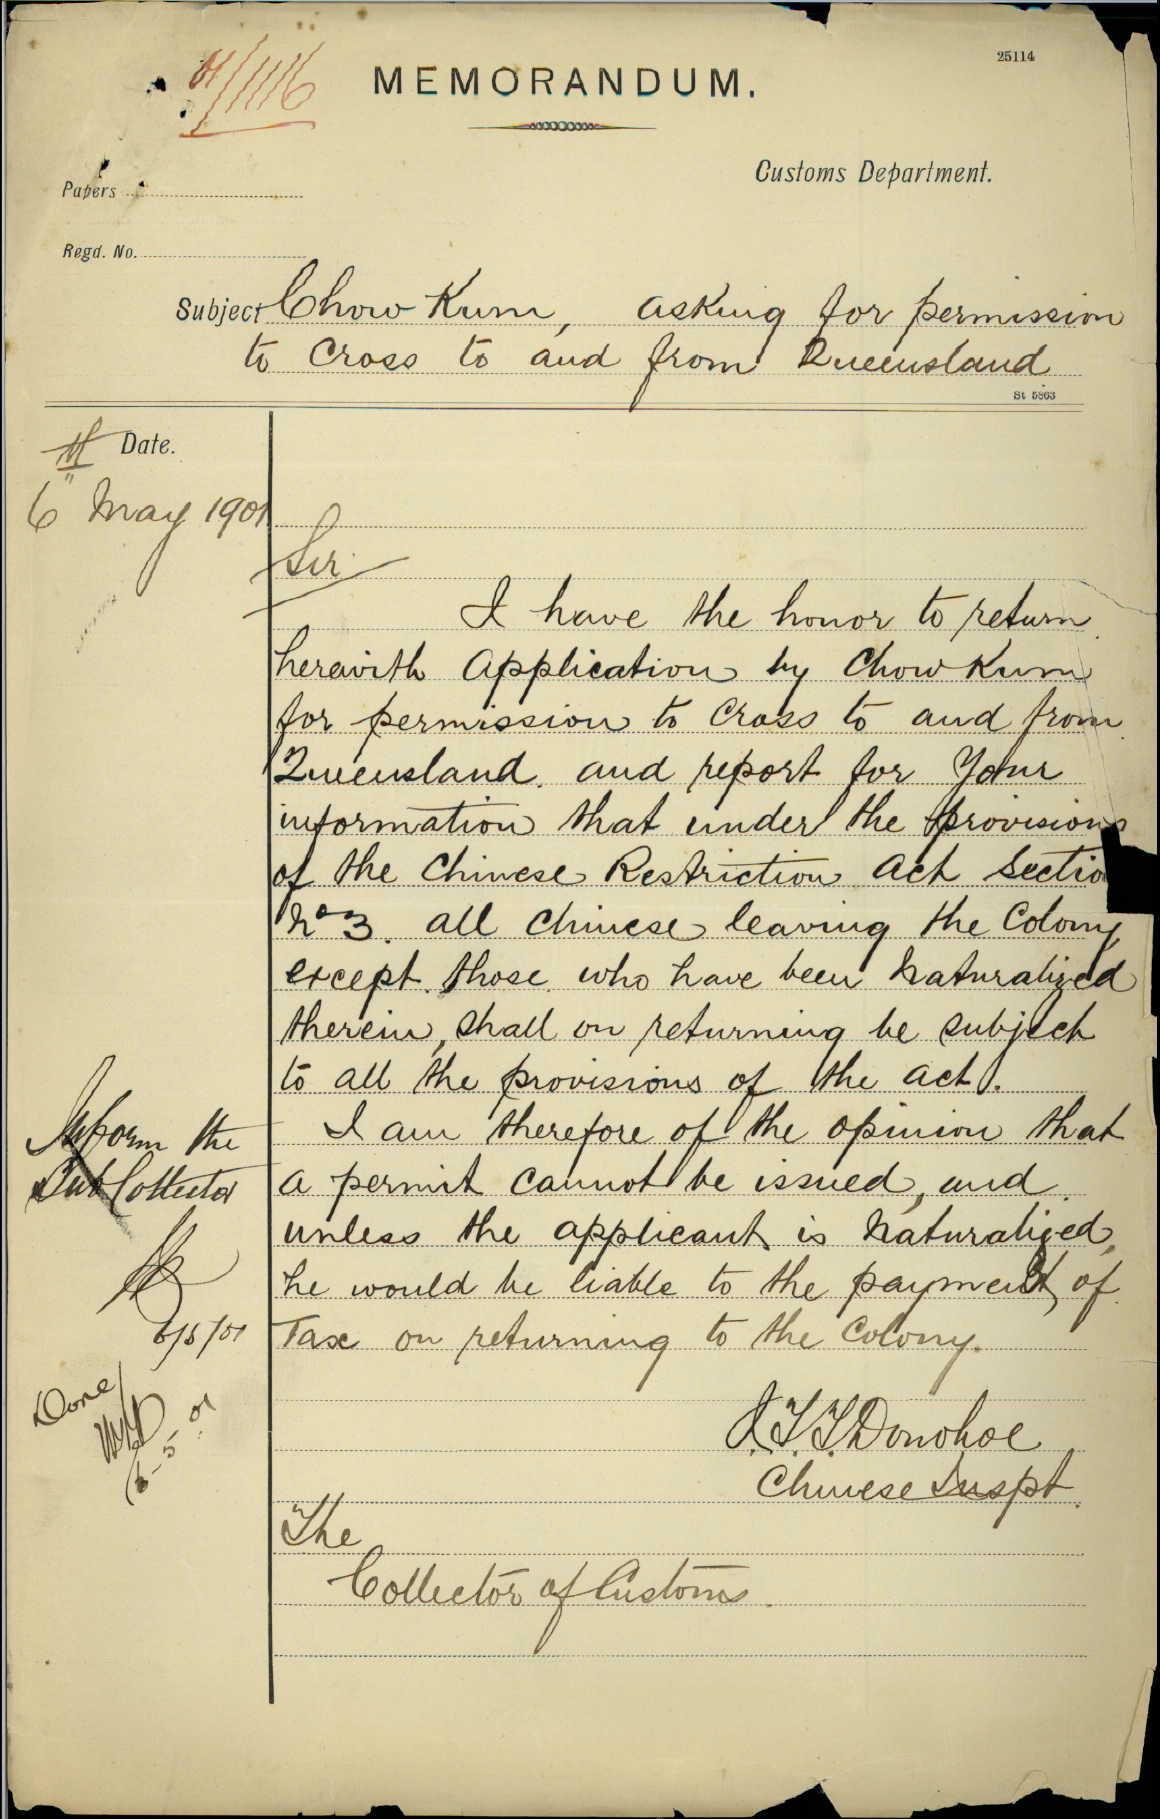 25114
01/1116
MEMORANDUM.
Customs Department.
Papers
Regd. No.
Subject Chow Kum, asking for permission
to cross to and from Queensland
St 5863
Date.
6" May 1901
Sir
I have the honor to return
herewith Application by Chow Kum
for permission to cross to and from
Queensland. and report for Your
information that under the provisions
of the Chinese Restriction Act Sectio
No 3. all Chinese leaving the Colony
except those who have been Naturalized
therein, shall on returning be subject
to all the provisions of the Act.
I am therefore of the opinion that
a permit cannot be issued, and
unless the applicant is Naturalized,
he would be liable to the payment of
Tax on returning to the Colony.
J.T.T. Donohoe
Chinese Inspt.
The
Collector of Customs.
Inform the
Sub Collector
6/5/01
Done
6-5-01